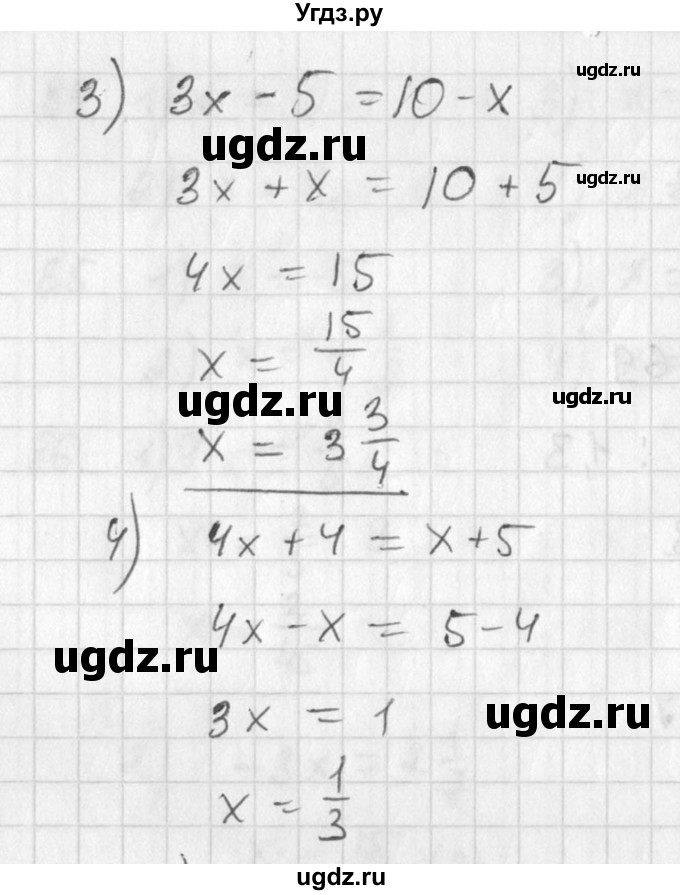 Угдз.ру
ugdz.ru
3) 3x - 5 = 10 - x
ugdz.ru
3x + x = 10 + 5 ugdz.ru
4x = 15
x = 15/4
ugdz.ru ugdz.ru
x = 3 3/4
4) 4x + 4 = x + 5
4x - x = 5 - 4
ugdz.ru
3x = 1 ugdz.ru
x = 1/3
ugdz.ru